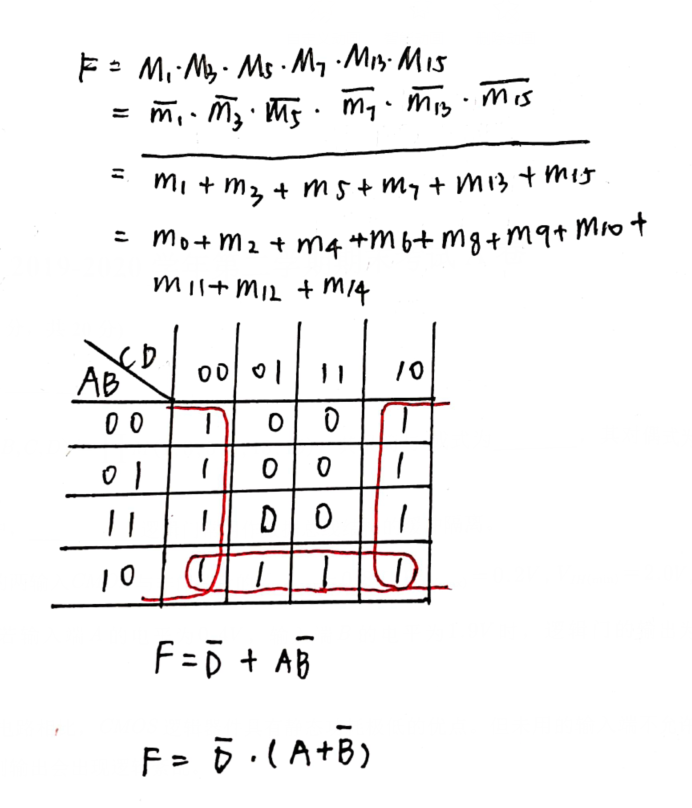 F = M₁·M₃·M₅·M₇·M₁₃·M₁₅
= m̅₁·m̅₃·m̅₅·m̅₇·m̅₁₃·m̅₁₅
= \overline{m₁+m₃+m₅+m₇+m₁₃+m₁₅}
= m₀+m₂+m₄+m₆+m₈+m₉+m₁₀+
m₁₁+m₁₂+m₁₄
AB\CD 00 01 11 10
00 1 0 0 1
01 1 0 0 1
11 1 0 0 1
10 1 1 1 1
F = D̅ + AB̅
F = D̅·(A+B̅)